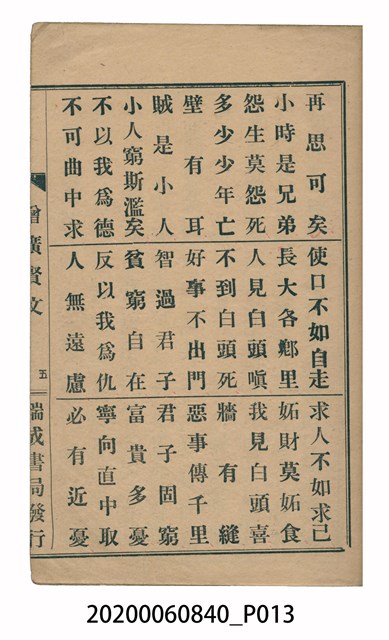 再思可矣 使口不如自走 求人不如求己
小時是兄弟 長大各鄉里 妬財莫妬食
怨生莫怨死 人見白頭嗔 我見白頭喜
多少少年亡 不到白頭死 牆有縫
壁有耳 好事不出門 惡事傳千里
賊是小人 智過君子 君子固窮
小人窮斯濫矣 貧窮自在 富貴多憂
不以我為德 反以我為仇 寧向直中取
不可曲中求 人無遠慮 必有近憂
增廣賢文 五 瑞成書局發行
20200060840_P013